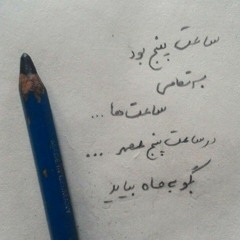 ساعت پنج بود
به تمامی
ساعت‌ها ...
در ساعت پنج عصر ...
بگو به ماه بیاید